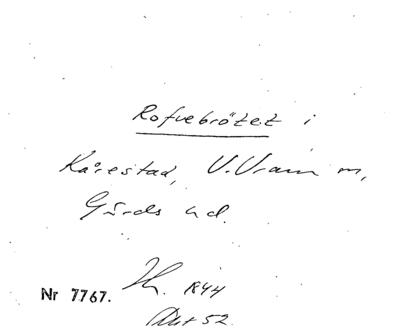 Rofvebrötet i
Kårestad, V. Vram m,
Gärds hd.
Nr 7767.
R44
52